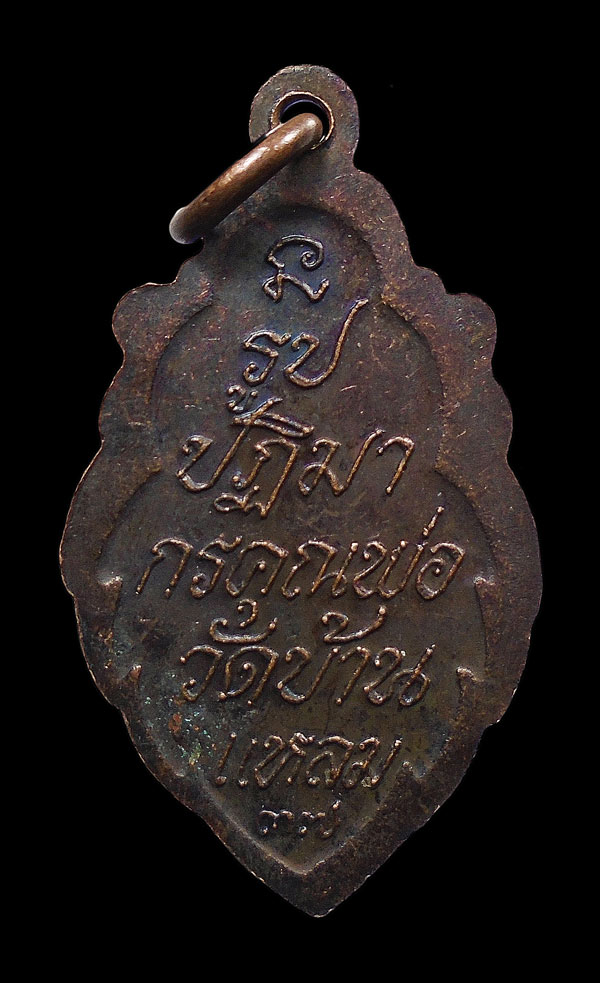 รูป
ปฏิมา
กรคุณพ่อ
วัดบ้าน
แหลม